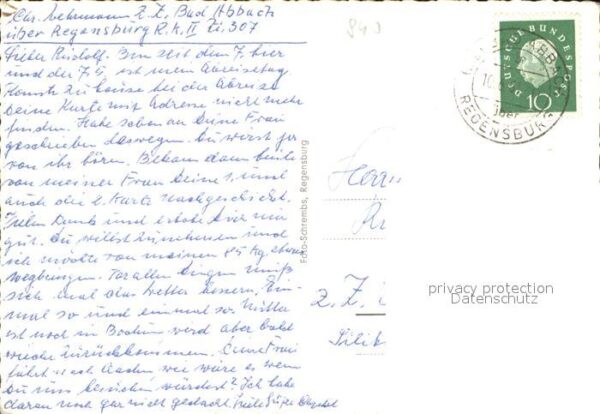 z. Z. Bad Abbach
über Regensburg R.K. II Zi. 307
Lieber Rudolf. Bin seit dem 7. hier
und der 7. 6. ist mein Abreisetag.
Konnte zu hause bei der Abreise
deine Karte mit Adresse nicht mehr
finden. Habe schon an deine Frau
geschrieben deswegen. Du wirst ja
von ihr hören. Bekam dann heute
von meiner Frau deine 1. und
auch die 2. Karte nachgeschickt.
Vielen Dank und erhole dich nur
gut. Du willst zunehmen und
ich möchte von meinen 85 kg etwas
wegbringen. Vor allen Dingen muß
sich mal das Wetter bessern. Ein-
mal so und einmal so. Mutter
ist noch in Bochum wird aber bald
wieder zurückkommen. Deine Frau
fährt nach Aachen wie wäre es wenn
du uns besuchen würdest? Ich habe
daran noch gar nicht gedacht. Viele Grüße
Foto-Schrembs, Regensburg
DEUTSCHE BUNDESPOST
10
über
REGENSBURG
Herrn
z. Z.
privacy protection
Datenschutz